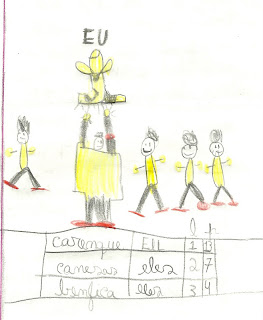 EU
carenque EU 1 13
canesas eles 2 7
benfica eles 3 4